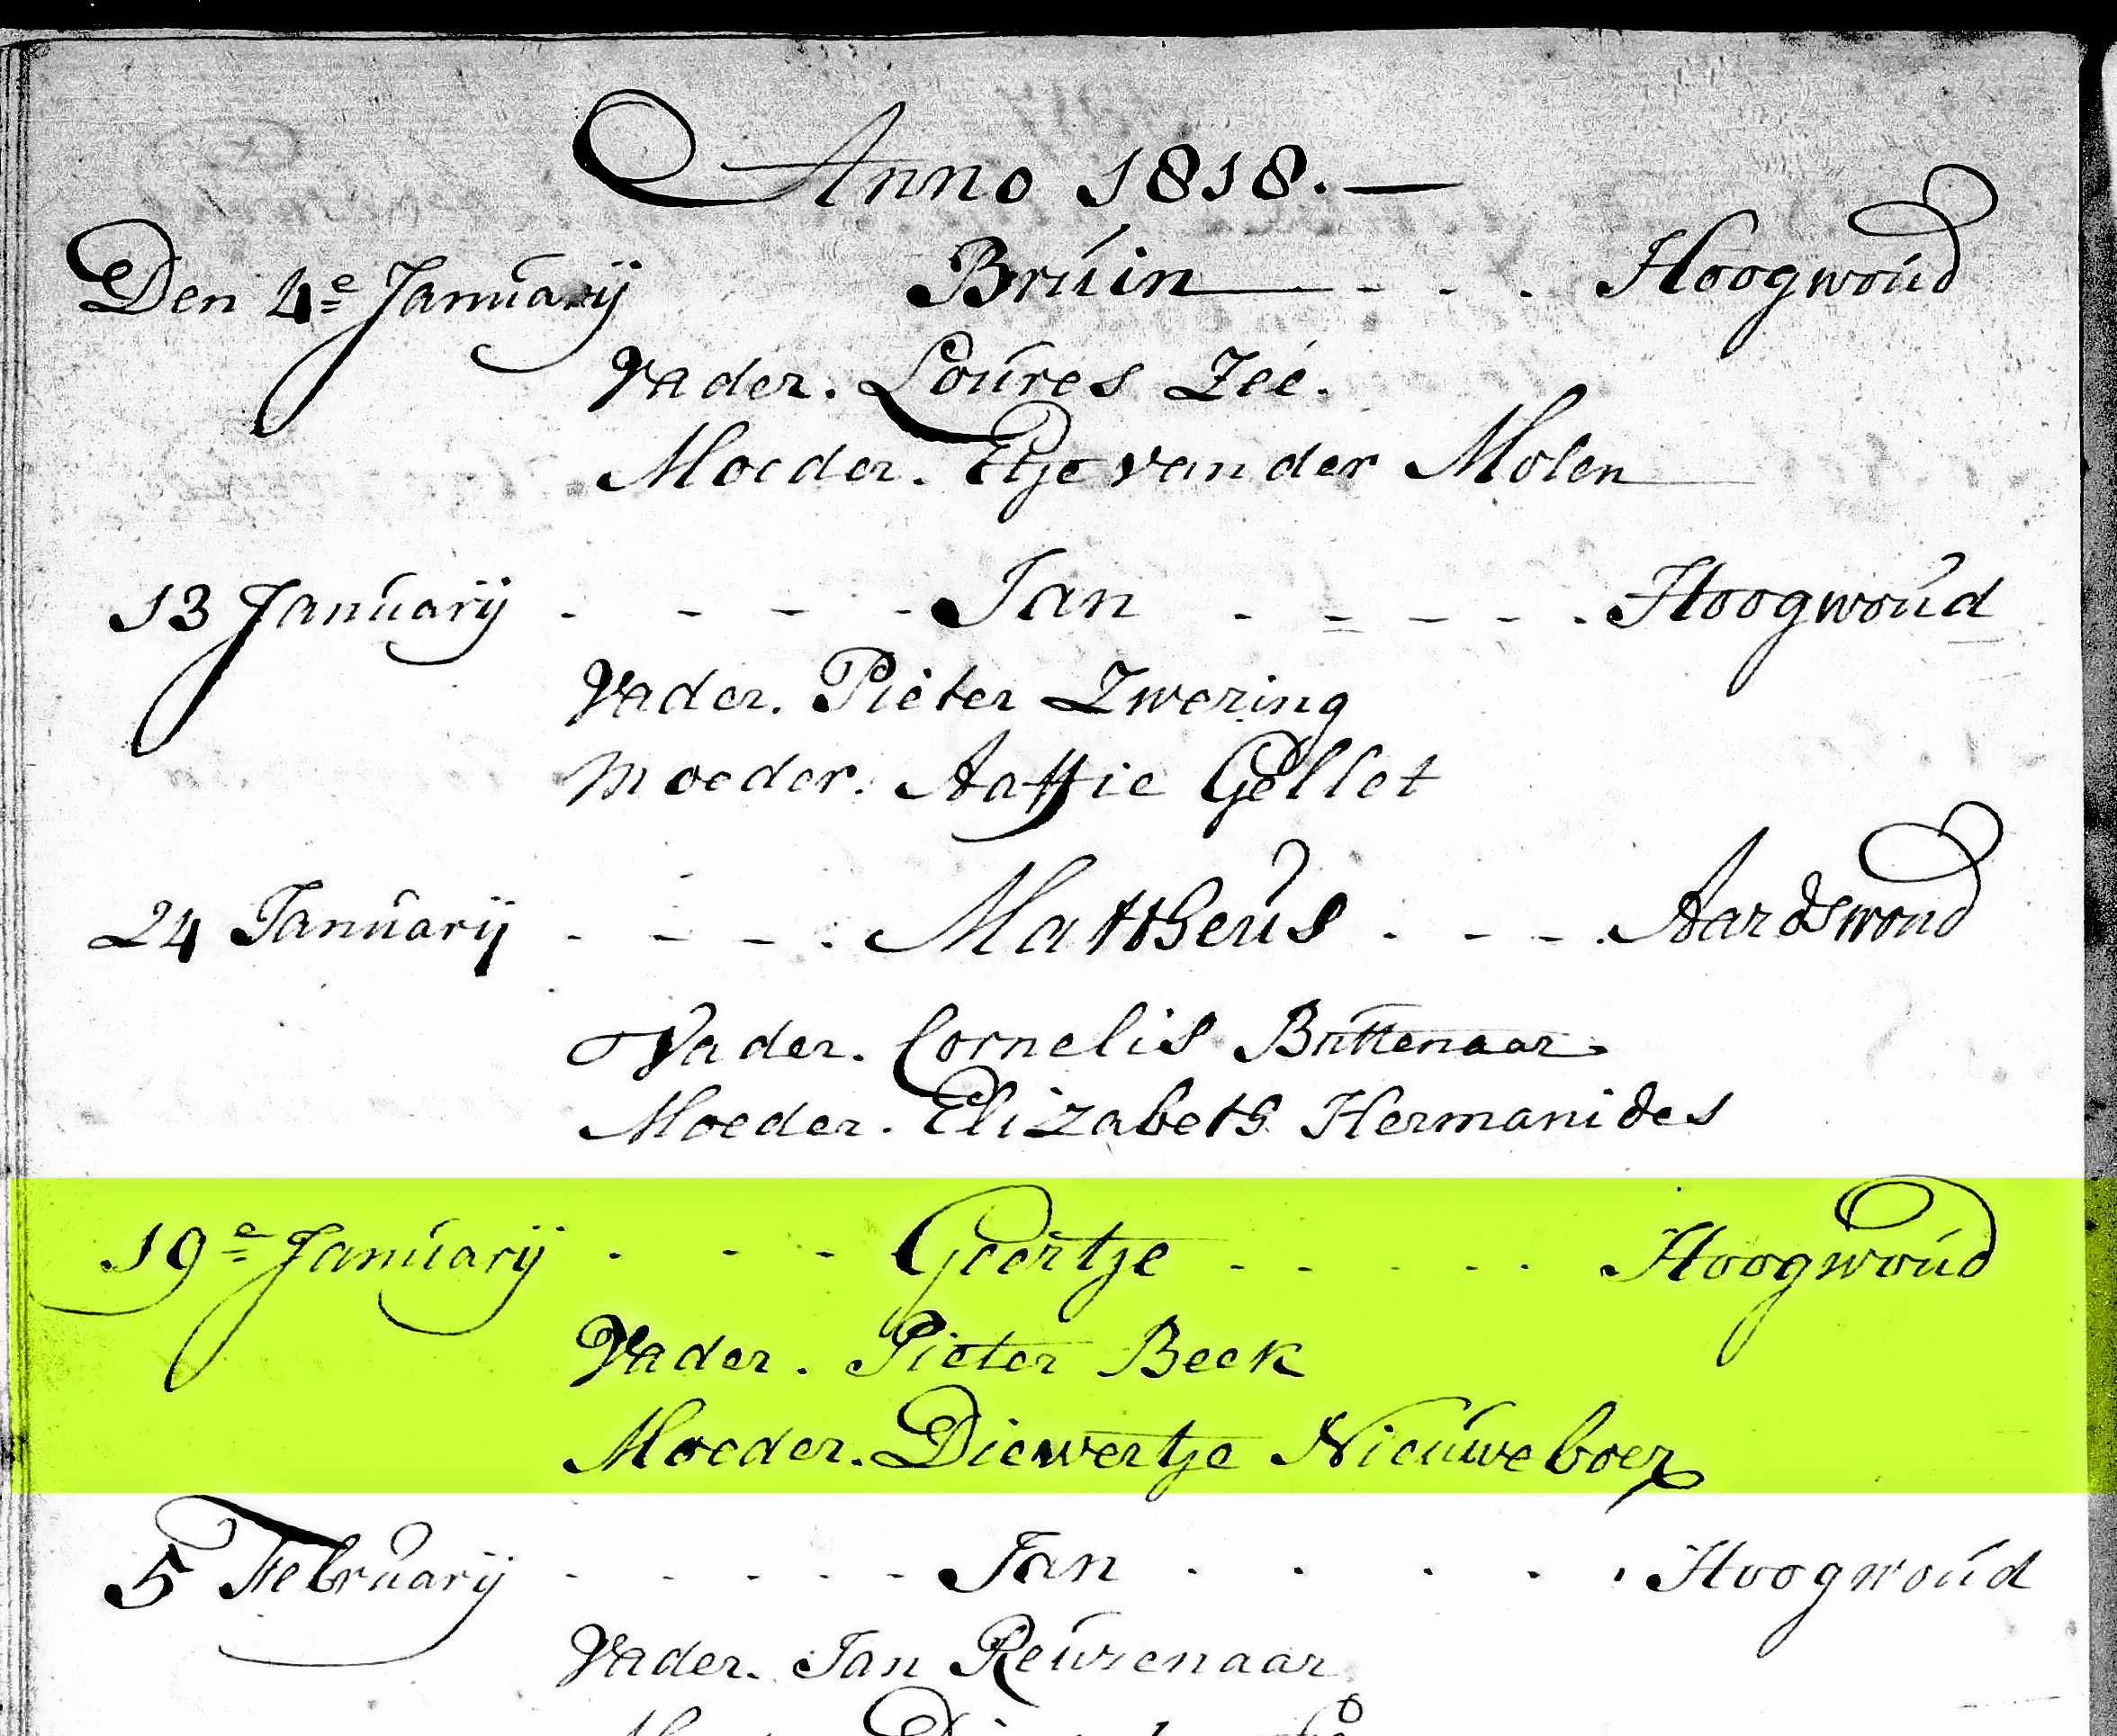 Anno 1818.—
Den 4e January Bruin - - - Hoogwoud
Vader. Loures Zee.
Moeder. Etje van der Molen
13 January - - - - Jan - - - - - Hoogwoud
Vader. Pieter Zwering
Moeder. Aaftie Gellet
24 January - - - - Mattheus - - - - Aardswoud
Vader. Cornelis Bruttenaar
Moeder. Elizabeth Hermanides
19e January - - - Geertje - - - - - Hoogwoud
Vader. Pieter Beek
Moeder. Diewertje Nieuweboer
5 February - - - - - Jan - - - - - Hoogwoud
Vader. Jan Reuzenaar